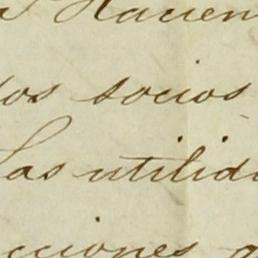 a Hacien
los socios
Las utilid
cciones g